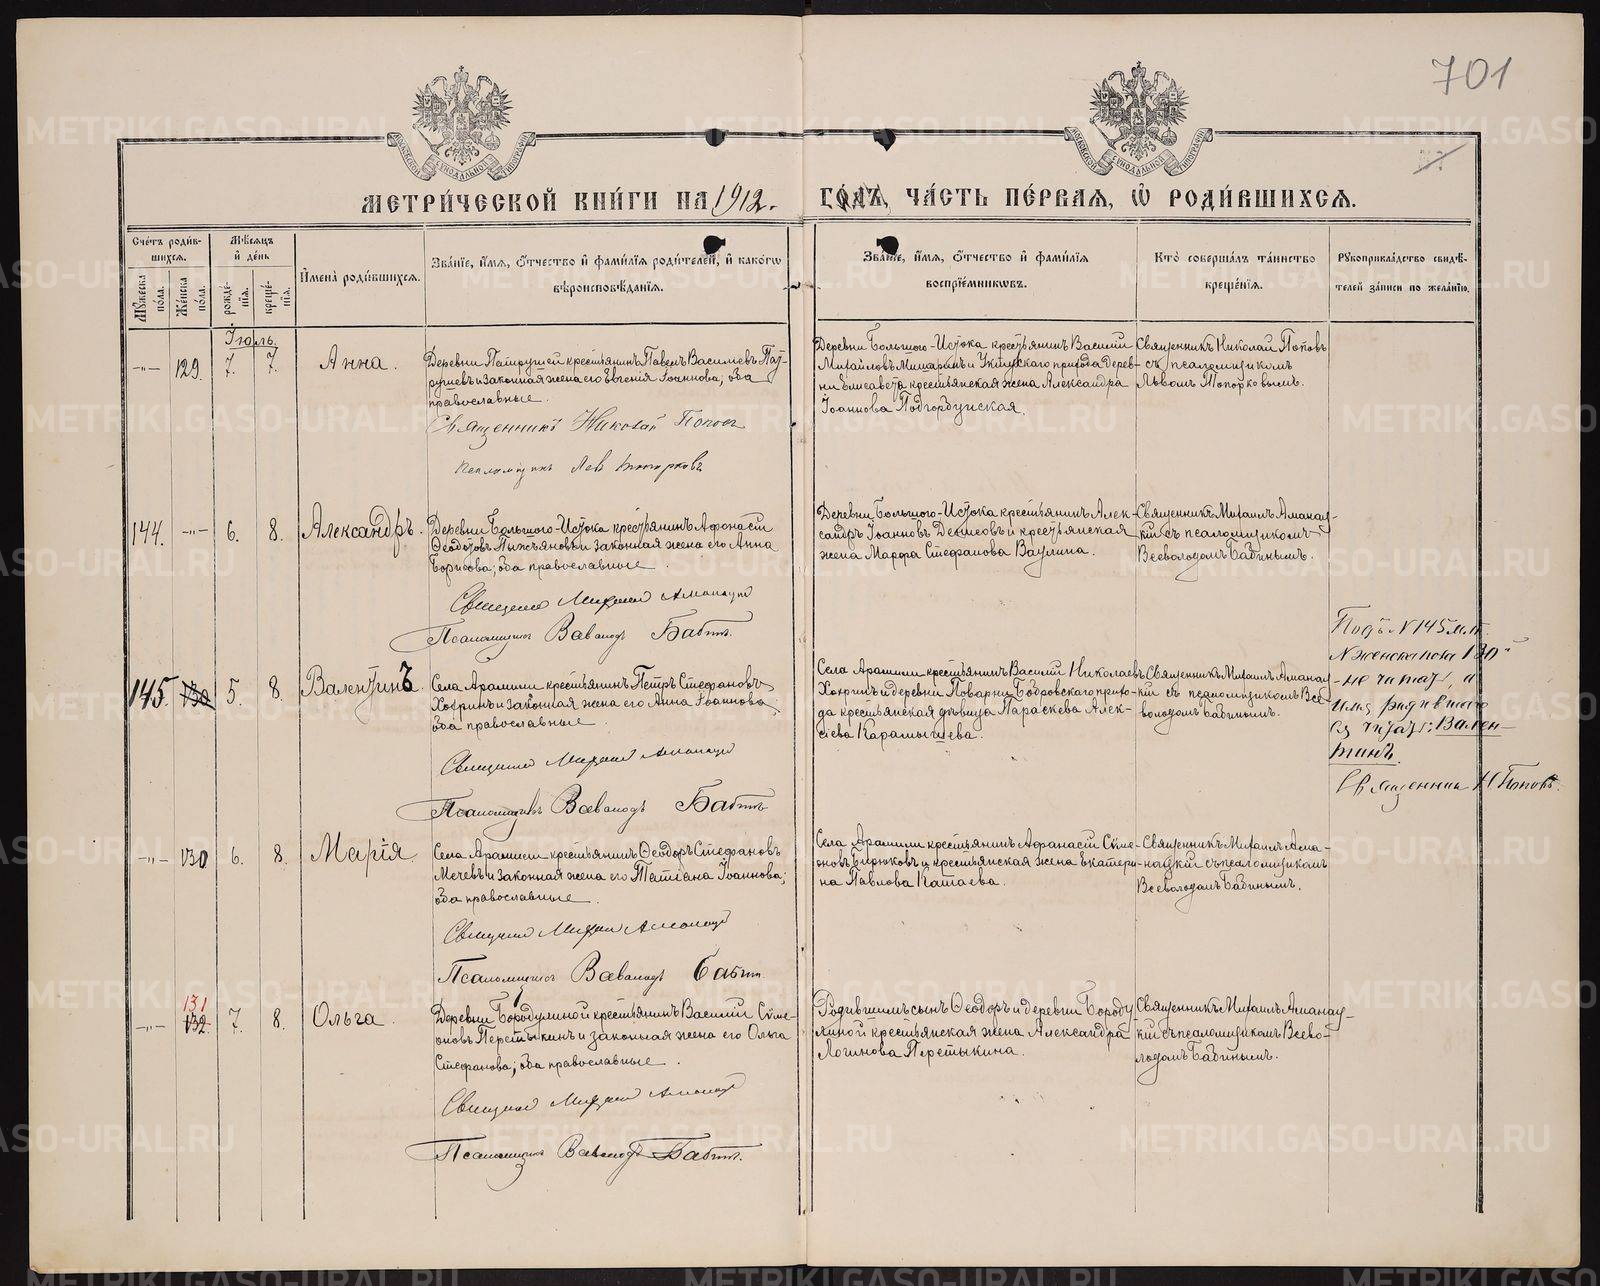 701
МЕТРИ́ЧЕСКОЙ КНИ́ГИ НА 1912.
ГО́ДЪ, ЧА́СТЬ ПЕ́РВАЯ, Ѡ҆ РОДИ́ВШИХСЯ.
Счетъ роди́в-
шихся.
Мꙋжеска по́ла.
Же́нска по́ла.
Мѣ́сяцъ
и҆ де́нь
рожде́-
нїя.
креще́-
нїя.
И҆мена̀ роди́вшихся.
Зва́нїе, и҆́мя, ѻ҆́тчество и҆ фами́лїя роди́телей, и҆ како́гѡ
вѣроисповѣ́данїя.
Зва́нїе, и҆́мя, ѻ҆́тчество и҆ фами́лїя
воспрїе́мниковъ.
Кто̀ соверша́лъ та́инство
креще́нїя.
Рꙋкоприкла́дство свидѣ́-
телей за́писи по жела́нїю.
Іюль.
-"- 129. 7. 7. Анна.
Деревни Патрушей крестьянинъ Павелъ Васильевъ Пат-
рушевъ и законная жена его Евгенія Іоаннова, оба
православные.
Священникъ Николай Поповъ
Псаломщикъ Левъ Топорковъ
Деревни Большого-Истока крестьянинъ Василій
Михайловъ и прихода Дерев-
ни Елисавета крестьянская жена Александра
Іоаннова Подгорбунская.
Священникъ Николай Поповъ
съ псаломщикомъ
Львомъ Топорковымъ.
144. -"- 6. 8. Александръ.
Деревни Большого-Истока крестьянинъ Афонасій
Ѳеодотовъ и законная жена его Анна
Борисова, оба православные.
Священникъ Михаилъ
Псаломщикъ Всеволодъ Бабинъ.
Деревни Большого-Истока крестьянинъ Алек-
сандръ Іоанновъ и крестьянская
жена Марѳа Стефанова Ваулина.
Священникъ Михаилъ Аманац-
кій съ псаломщикомъ
Всеволодомъ Бабинымъ.
145. 130 5. 8. Валентинъ.
Села Арамили крестьянинъ Петръ Стефановъ
Хохринъ и законная жена его Анна Іоаннова,
оба православные.
Священникъ Михаилъ
Псаломщикъ Всеволодъ Бабинъ
Села Арамили крестьянинъ Василій Николаевъ
Хохринъ и деревни Поварни Бобровскаго прихо-
да крестьянская дѣвица Параскева Алек-
сіева Карамышева.
Священникъ Михаилъ Аманац-
кій съ псаломщикомъ Все-
володомъ Бабинымъ.
Подъ № 145 м.п.
№ женска пола 130
- не читать, а
имя родившаго
ся читать: Вален-
тинъ.
Священникъ Н Поповъ.
-"- 130 6. 8. Марія.
Села Арамили крестьянинъ Ѳеодоръ Стефановъ
Мечевъ и законная жена его Татіана Іоаннова;
оба православные.
Священникъ Михаилъ
Псаломщикъ Всеволодъ Бабинъ.
Села Арамили крестьянинъ Афанасій Симе-
оновъ Бирюковъ и крестьянская жена Екатери-
на Павлова Катаева.
Священникъ Михаилъ Ама-
нацкій съ псаломщикомъ
Всеволодомъ Бабинымъ.
131
-"- 132. 7. 8. Ольга.
Деревни Бородулиной крестьянинъ Василій Симе-
оновъ Перетыкинъ и законная жена его Ольга
Стефанова; оба православные.
Священникъ Михаилъ
Псаломщикъ Всеволодъ Бабинъ.
Родившимъ сынъ Ѳеодоръ и деревни Бороду-
линой крестьянская жена Александра
Логинова Перетыкина.
Священникъ Михаилъ Аманац-
кій съ псаломщикомъ Всево-
лодомъ Бабинымъ.